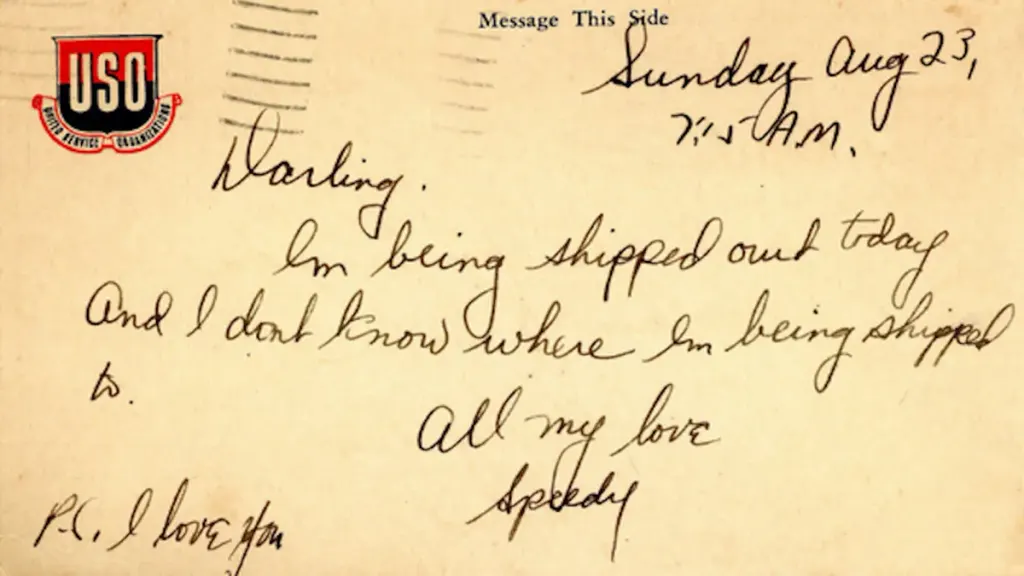 Message This Side
USO
UNITED SERVICE ORGANIZATIONS
Sunday Aug 23,
7:15 A.M.
Darling.
Im being shipped out today
And I dont know where Im being shipped
to.
All my love
Speedy
P.S. I love you